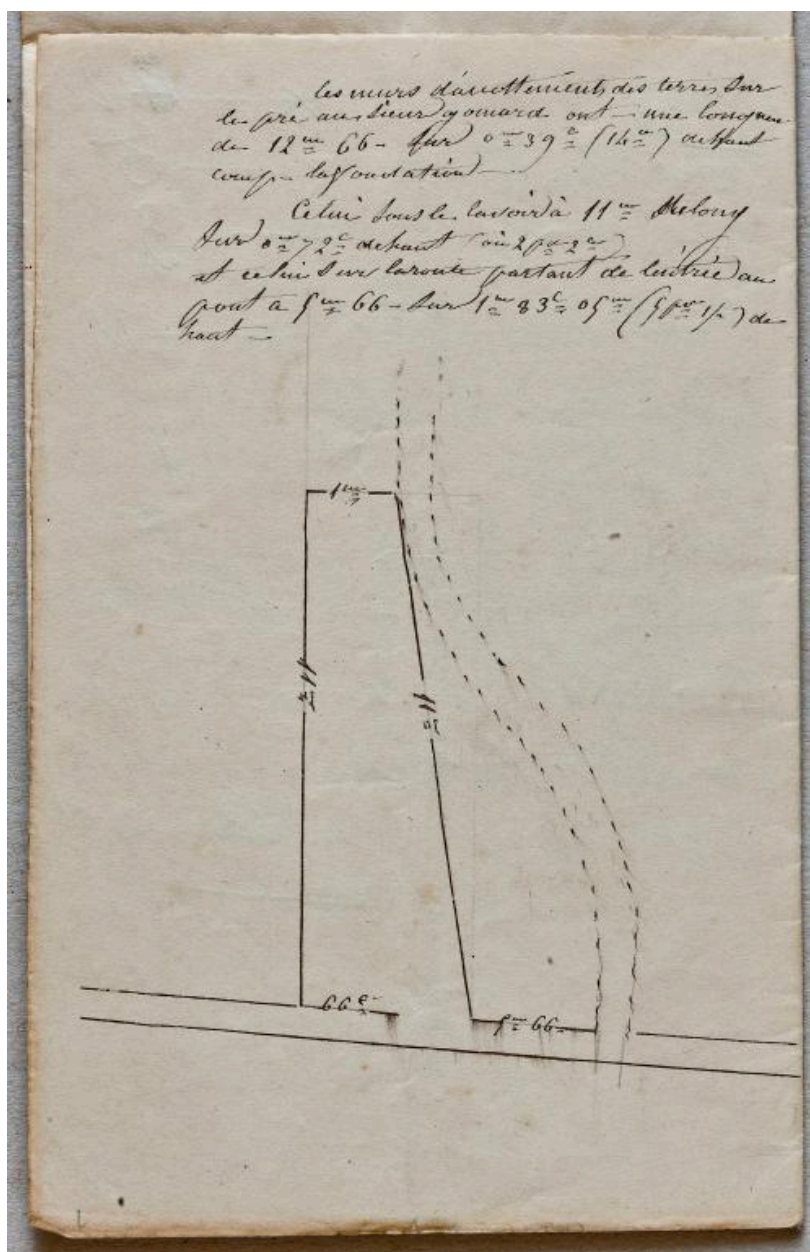 les murs d'accottements des terres sur
le pré au sieur gomard ont une longueur
de 12m 66 - sur 0m 39c (14) de haut
comp. la fondation
Celui sous le lavoir à 11m de long
sur 0m 72c de haut (ou 2 2)
et celui sur la route partant de l'entrée au
pont à 1m 66 - sur 1m 83c 05m (5 1/2) de
haut -
1m
11m
11m
66c
1m 66